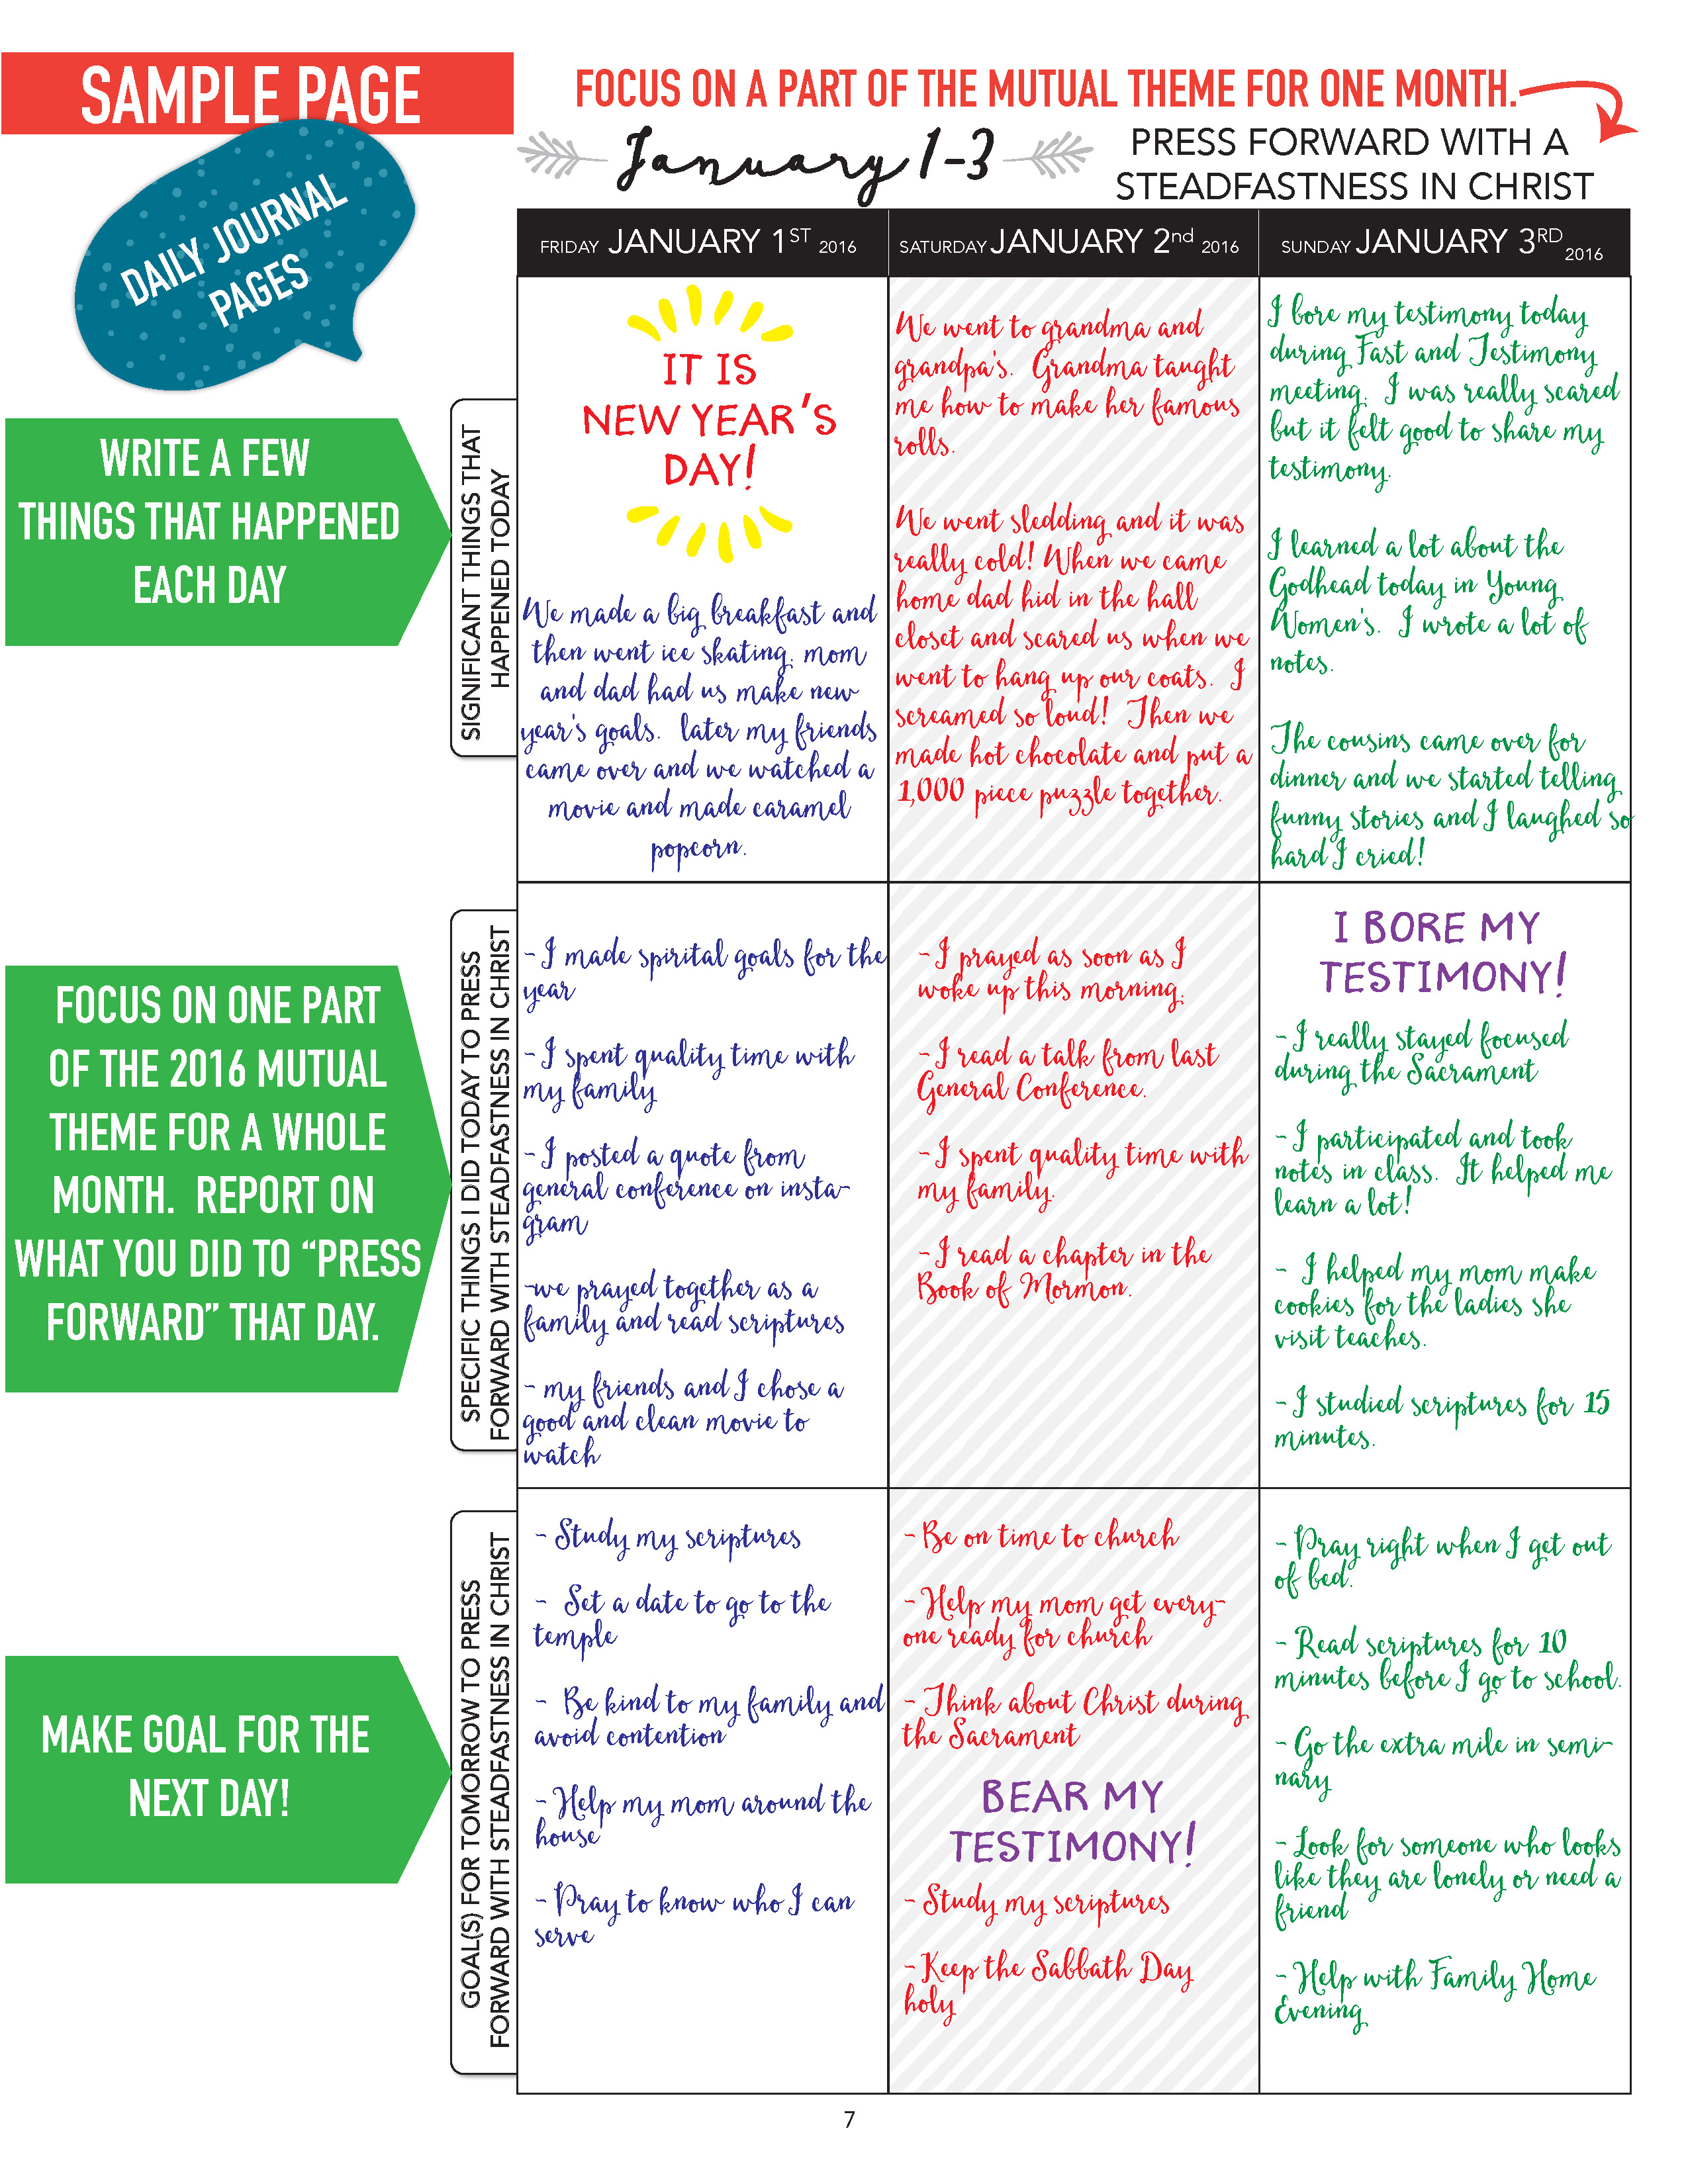 SAMPLE PAGE
DAILY JOURNAL
PAGES
FOCUS ON A PART OF THE MUTUAL THEME FOR ONE MONTH.
January 1-3
PRESS FORWARD WITH A
STEADFASTNESS IN CHRIST
FRIDAY JANUARY 1ST 2016
SATURDAY JANUARY 2nd 2016
SUNDAY JANUARY 3RD 2016
WRITE A FEW
THINGS THAT HAPPENED
EACH DAY
SIGNIFICANT THINGS THAT
HAPPENED TODAY
IT IS
NEW YEAR'S
DAY!
We made a big breakfast and
then went ice skating. mom
and dad had us make new
year's goals. later my friends
came over and we watched a
movie and made caramel
popcorn.
We went to grandma and
grandpa's. Grandma taught
me how to make her famous
rolls.
We went sledding and it was
really cold! When we came
home dad hid in the hall
closet and scared us when we
went to hang up our coats. I
screamed so loud! Then we
made hot chocolate and put a
1,000 piece puzzle together.
I bore my testimony today
during Fast and Testimony
meeting. I was really scared
but it felt good to share my
testimony.
I learned a lot about the
Godhead today in Young
Women's. I wrote a lot of
notes.
The cousins came over for
dinner and we started telling
funny stories and I laughed so
hard I cried!
FOCUS ON ONE PART
OF THE 2016 MUTUAL
THEME FOR A WHOLE
MONTH. REPORT ON
WHAT YOU DID TO “PRESS
FORWARD” THAT DAY.
SPECIFIC THINGS I DID TODAY TO PRESS
FORWARD WITH STEADFASTNESS IN CHRIST
- I made spirital goals for the
year
- I spent quality time with
my family
- I posted a quote from
general conference on insta-
gram
-we prayed together as a
family and read scriptures
- my friends and I chose a
good and clean movie to
watch
- I prayed as soon as I
woke up this morning.
- I read a talk from last
General Conference.
- I spent quality time with
my family.
- I read a chapter in the
Book of Mormon.
I BORE MY
TESTIMONY!
- I really stayed focused
during the Sacrament
- I participated and took
notes in class. It helped me
learn a lot!
- I helped my mom make
cookies for the ladies she
visit teaches.
- I studied scriptures for 15
minutes.
MAKE GOAL FOR THE
NEXT DAY!
GOAL(S) FOR TOMORROW TO PRESS
FORWARD WITH STEADFASTNESS IN CHRIST
- Study my scriptures
- Set a date to go to the
temple
- Be kind to my family and
avoid contention
- Help my mom around the
house
- Pray to know who I can
serve
- Be on time to church
- Help my mom get every-
one ready for church
- Think about Christ during
the Sacrament
BEAR MY
TESTIMONY!
- Study my scriptures
- Keep the Sabbath Day
holy
- Pray right when I get out
of bed.
- Read scriptures for 10
minutes before I go to school.
- Go the extra mile in semi-
nary
- Look for someone who looks
like they are lonely or need a
friend
- Help with Family Home
Evening
7